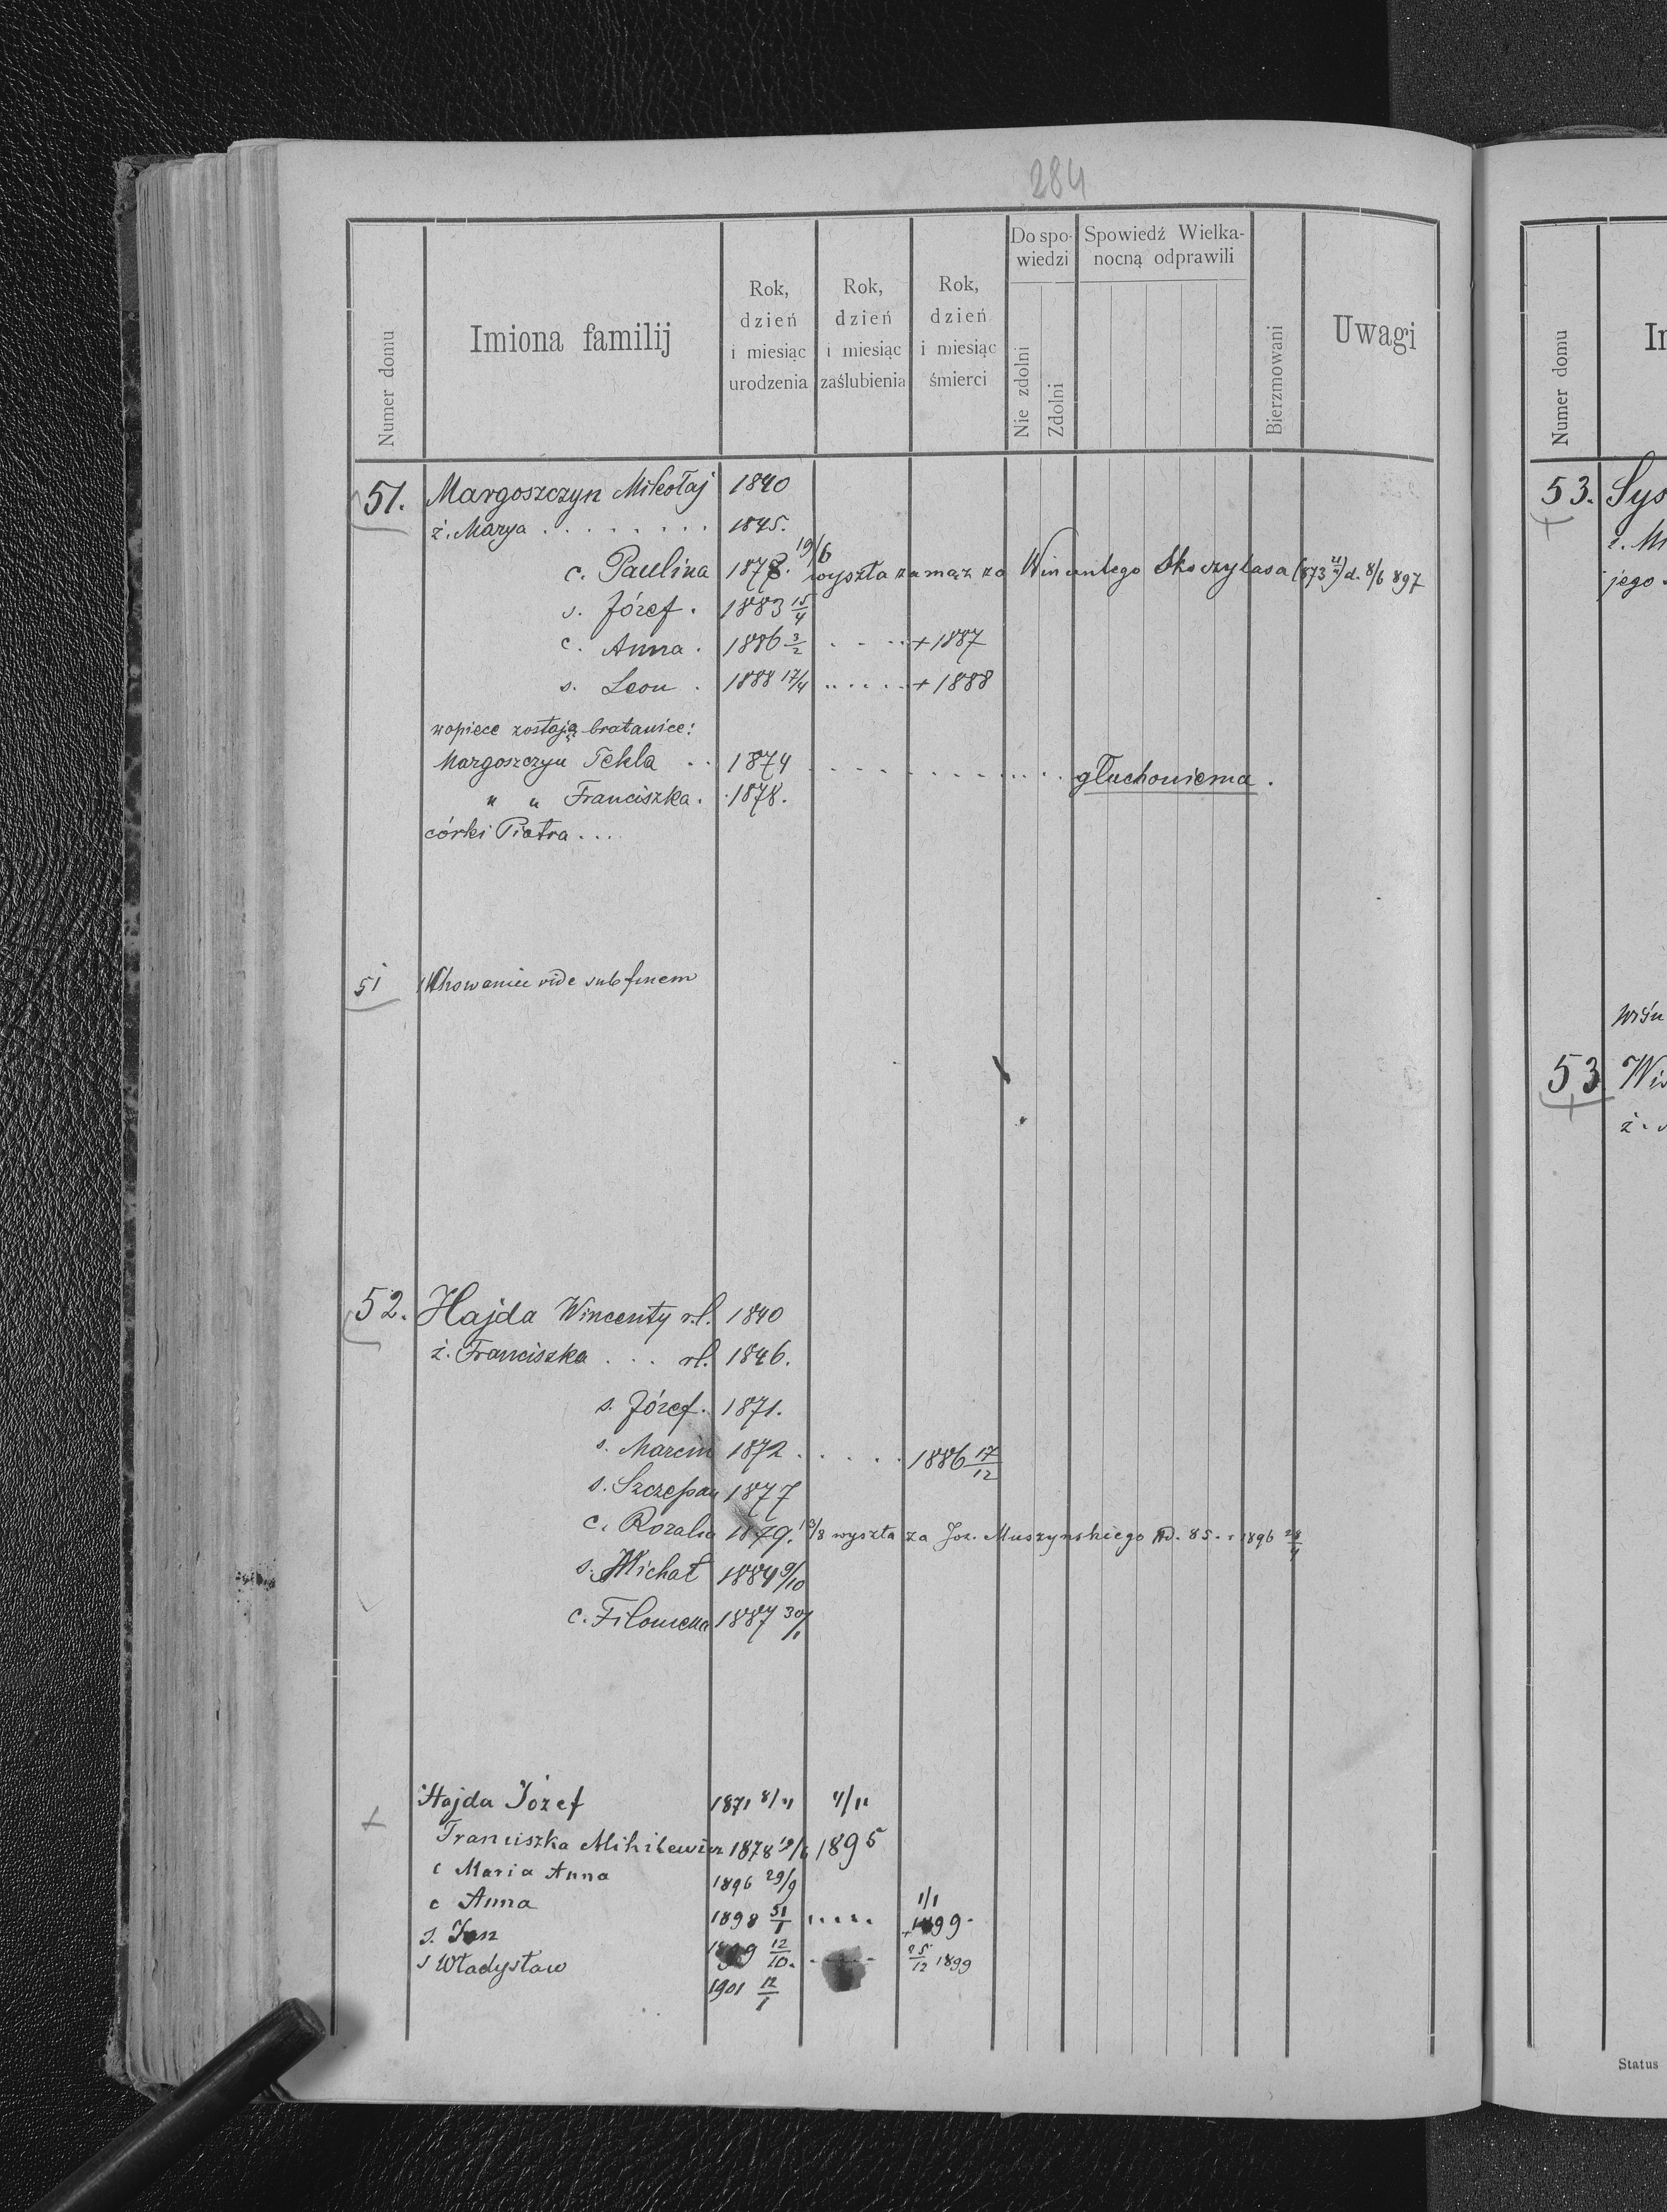 284
Numer domu
Imiona familij
Rok, dzień i miesiąc urodzenia
Rok, dzień i miesiąc zaślubienia
Rok, dzień i miesiąc śmierci
Do spowiedzi
Nie zdolni
Zdolni
Spowiedź Wielkanocną odprawili
Bierzmowani
Uwagi
51. Margoszczyn Mikołaj 1840
ż. Marya . . . . . . . . 1845.
c. Paulina 1878. 19/6 wyszła zamąż za Wincentego Skoczylasa (873) d. 8/6 897
s. Józef . 1883 15/4
c. Anna . 1886 3/2 . - - .. + 1887
s. Leon . 1888 17/4 ..... + 1888
wopiece zostają bratanice:
Margoszczyn Tekla .. 1874 . . . . . . . . . . . głuchoniema .
" " Franciszka . 1878.
córki Piotra ...
51 Chowaniec vide sub finem
52. Hajda Wincenty rl. 1840
ż. Franciszka . . . rl. 1846.
s. Józef . 1871.
s. Marcin 1872 . . . . . 1886 17/12
s. Szczepan 1877
c. Rozalia 1879. /8 wyszła za Joz. Muszynskiego Nd. 85. r 1896 28/4
s. Michał 1884 9/10
c. Filomena 1887 30/11
+ Hajda Józef 1871 8/11 4/11
Franciszka Mihilewicz 1878 19/6 1895
c Maria Anna 1896 29/9
c Anna 1898 31/1 ..... 1/1 + 1899 -
s. Jan 1899 12/10. 25/12 1899
s Władysław 1901 12/1
Numer domu
53. Sys
ż. M
jego
53 Wis
ż.
Status